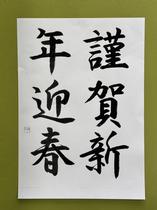 謹賀新
年迎春